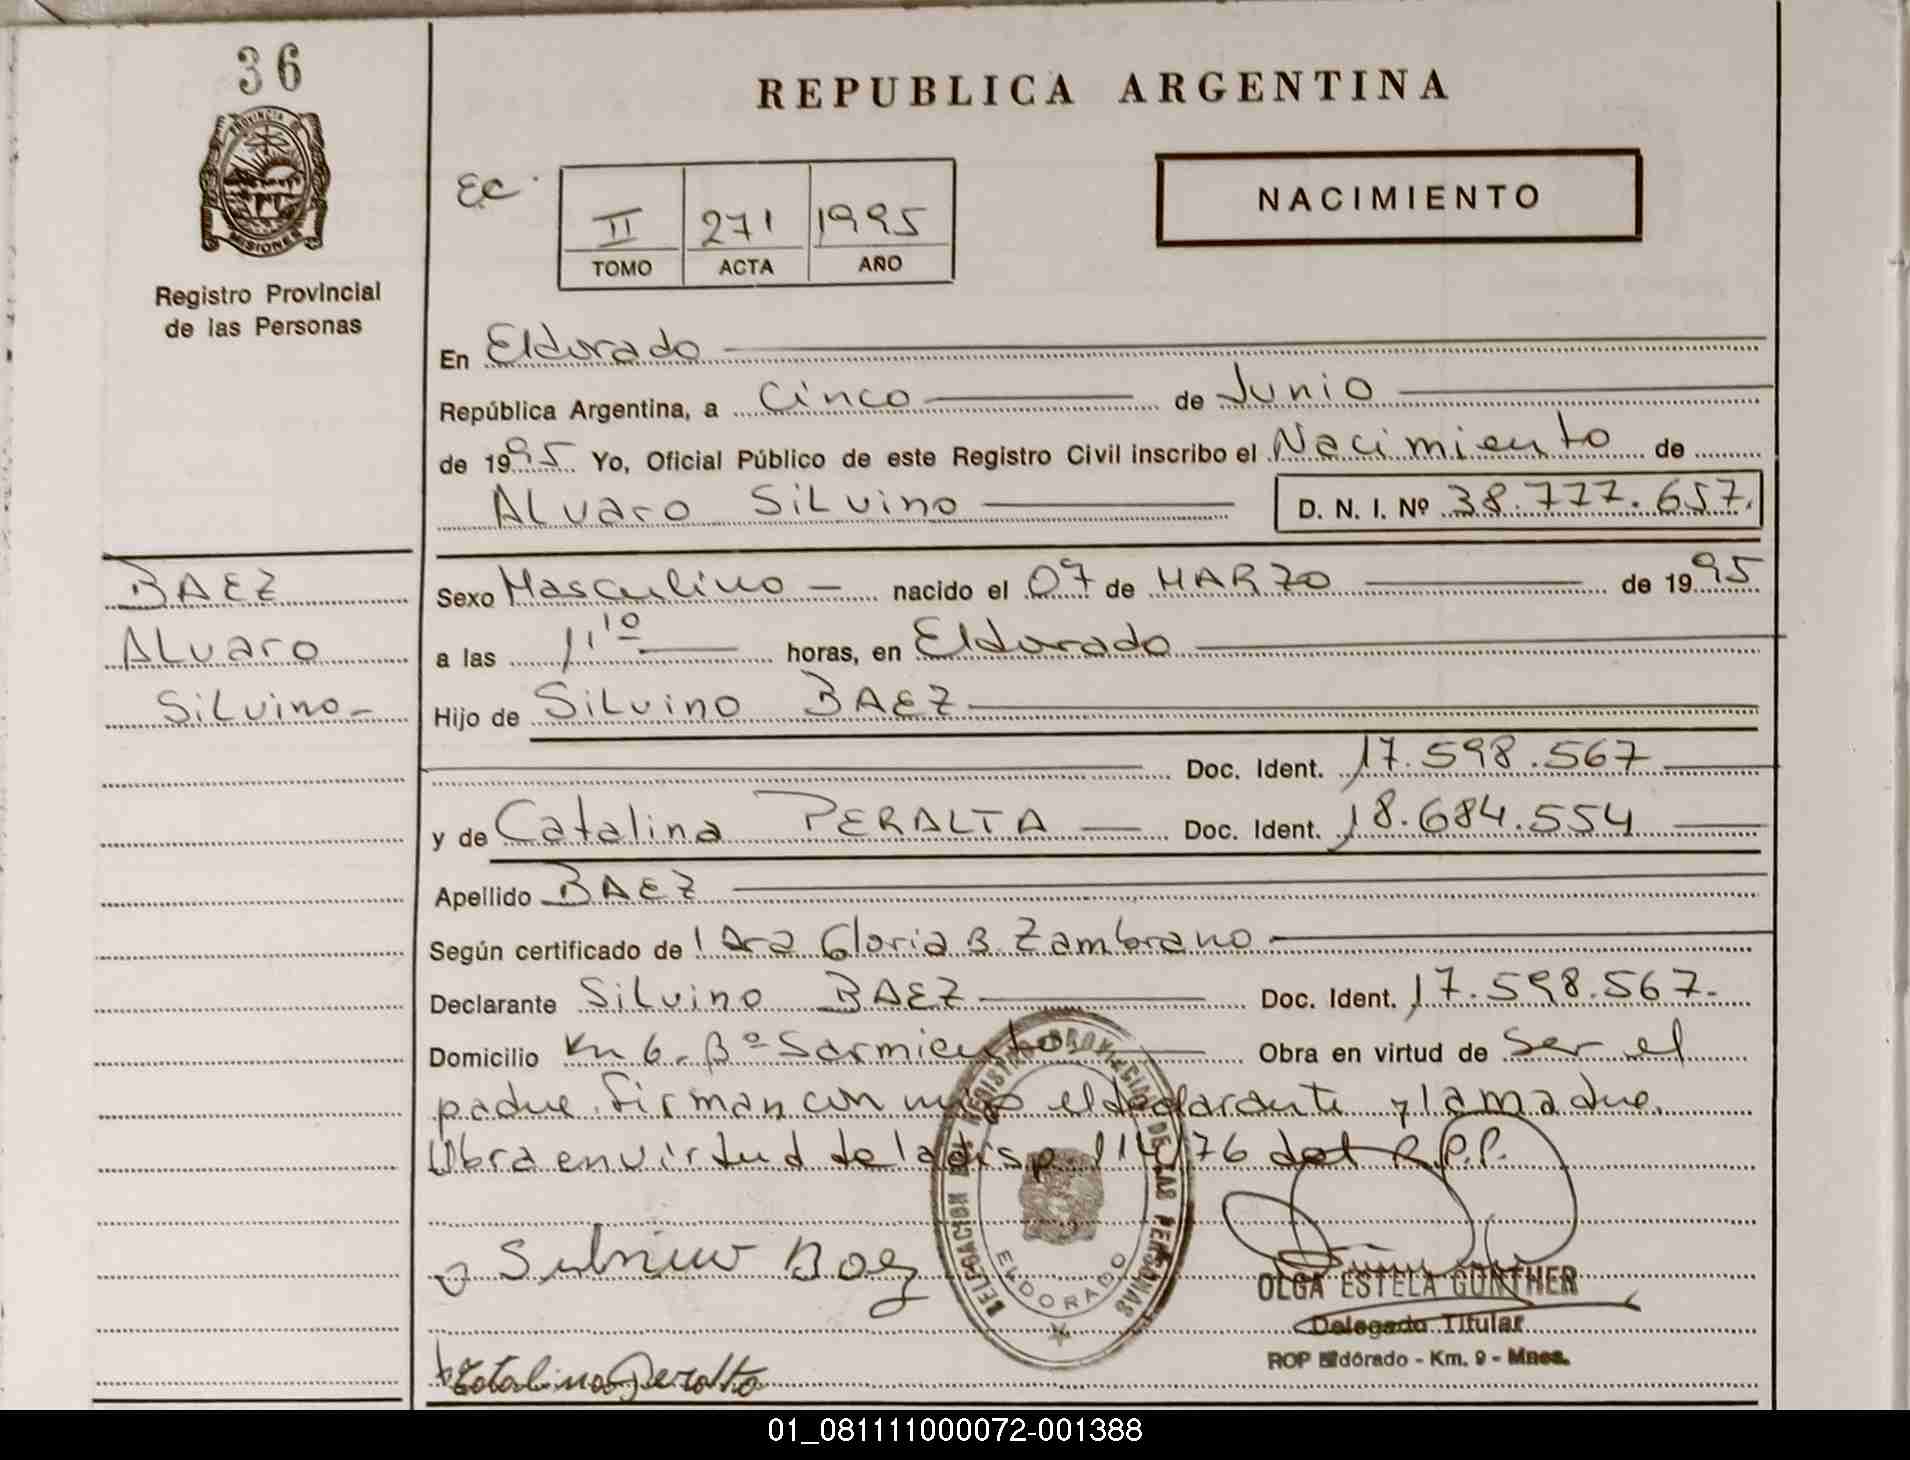 36
PROVINCIA DE
MISIONES
Registro Provincial
de las Personas
REPUBLICA ARGENTINA
EC.
II 271 1995
TOMO ACTA AÑO
NACIMIENTO
En Eldorado
República Argentina, a Cinco de Junio
de 1995 Yo, Oficial Público de este Registro Civil inscribo el Nacimiento de
Alvaro Silvino D. N. I. Nº 38.777.657.
BAEZ
Alvaro
Silvino-
Sexo Masculino nacido el 07 de MARZO de 1995
a las 11 10 horas, en Eldorado
Hijo de Silvino BAEZ
Doc. Ident. 17.598.567
y de Catalina PERALTA Doc. Ident. 18.684.554
Apellido BAEZ
Según certificado de Dra Gloria B. Zambrano
Declarante Silvino BAEZ Doc. Ident. 17.598.567.
Domicilio Km 6. Bº Sarmiento Obra en virtud de ser el
padre. Firman con migo el declarante y la madre.
Obra en virtud de la disp. 114/76 del R.P.P.
Silvino Baez
DELEGACION DEL REGISTRO PROVINCIAL DE LAS PERSONAS
ELDORADO
OLGA ESTELA GUNTHER
Delegada Titular
ROP Eldorado - Km. 9 - Mnes.
Catalina Peralta
01_081111000072-001388